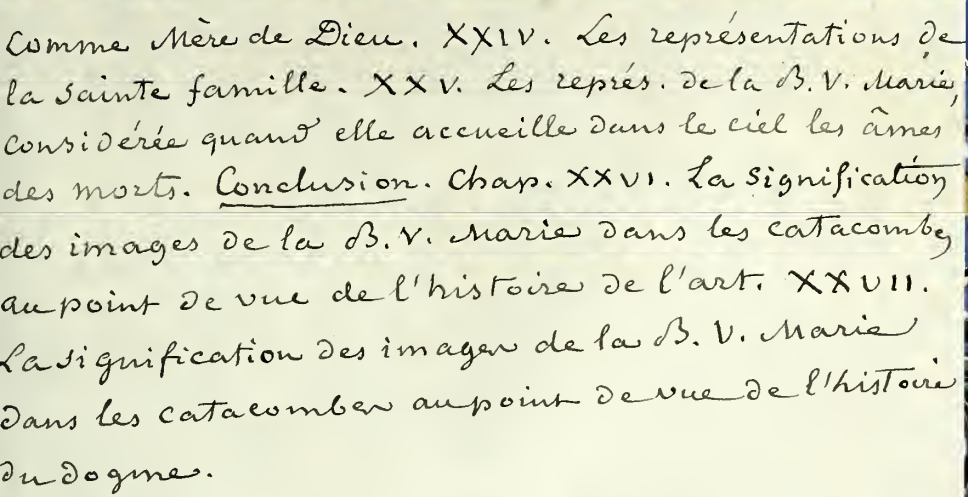 Comme Mère de Dieu. XXIV. Les représentations de
la Sainte famille. XXV. Les représ. de la B. V. Marie,
considérée quand elle accueille dans le ciel les âmes
des morts. Conclusion. Chap. XXVI. La Signification
des images de la B. V. Marie dans les catacombes
au point de vue de l'histoire de l'art. XXVII.
La signification des images de la B. V. Marie
dans les catacombes au point de vue de l'histoire
du dogme.